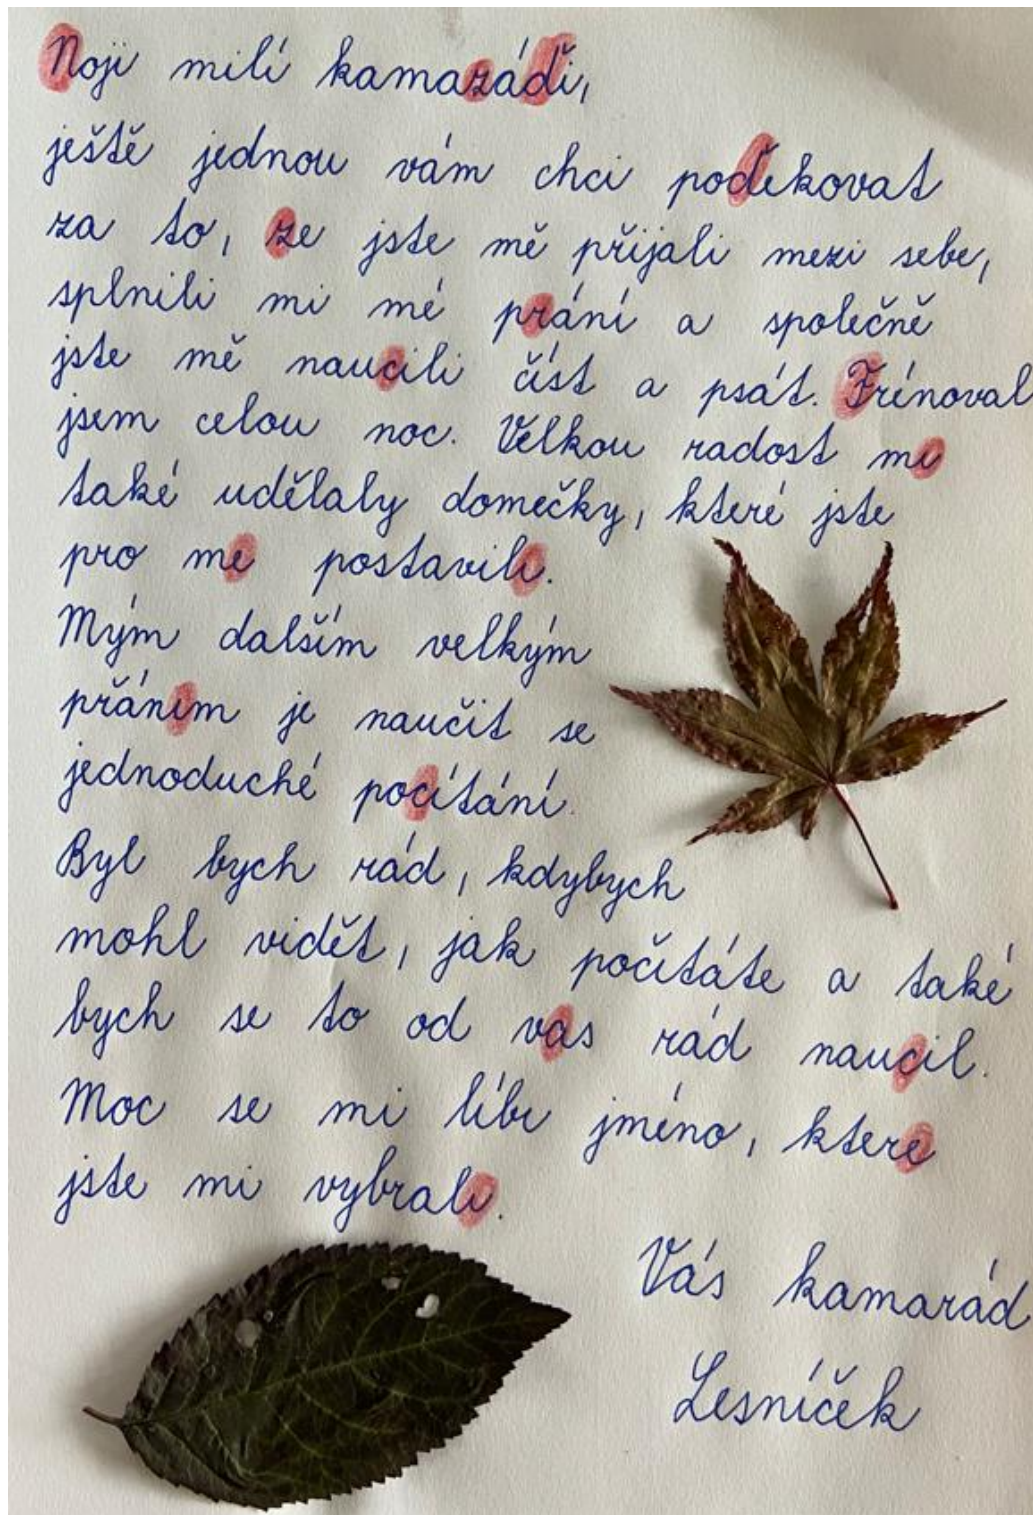 Noji milí kamazáďi,
ještě jednou vám chci poďekovat
za to, ze jste mě přijali mezi sebe,
splnili mi mé prání a společně
jste mě naucili číst a psát. Frénoval
jsem celou noc. Velkou radost mi
také udělaly domečky, které jste
pro me postavili.
Mým dalším velkým
přánim je naučit se
jednoduché pocítání.
Byl bych rád, kdybych
mohl vidět, jak počítáte a také
bych se to od vas rád naucil.
Moc se mi líbi jméno, ktere
jste mi vybrali.
Vás kamarád
Lesníček